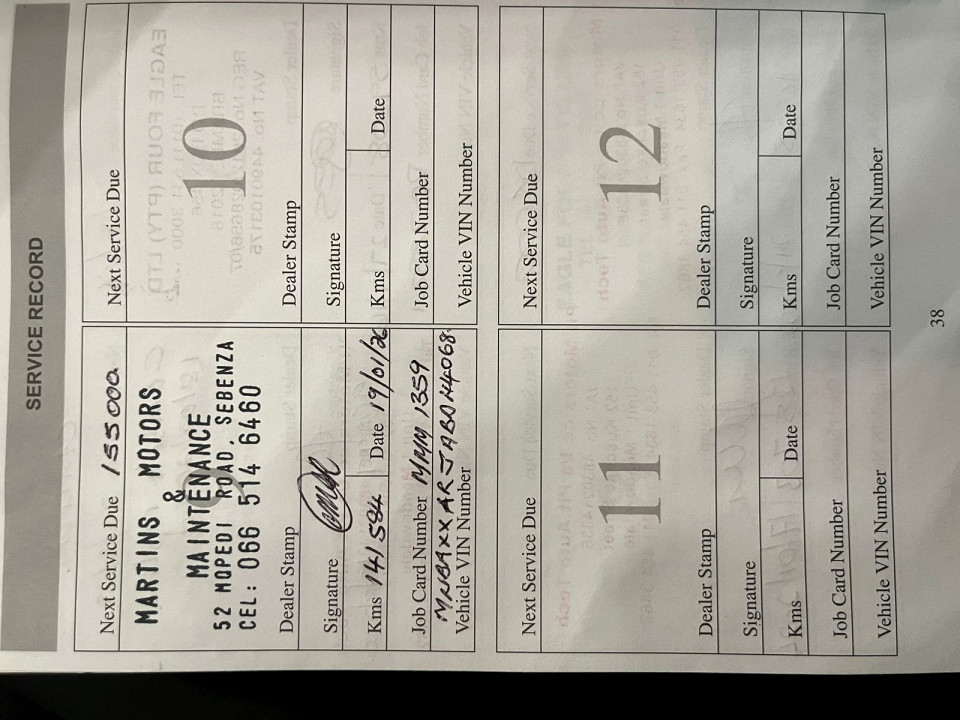 SERVICE RECORD
Next Service Due 155000
MARTINS MOTORS
&
MAINTENANCE
52 MOPEDI ROAD, SEBENZA
CEL: 066 514 6460
Dealer Stamp
Signature
Kms 141584 Date 19/01/26
Job Card Number MMM 1359
MNBAXXARJABD44068
Vehicle VIN Number
Next Service Due
10
Dealer Stamp
Signature
Kms Date
Job Card Number
Vehicle VIN Number
Next Service Due
11
Dealer Stamp
Signature
Kms Date
Job Card Number
Vehicle VIN Number
Next Service Due
12
Dealer Stamp
Signature
Kms Date
Job Card Number
Vehicle VIN Number
38